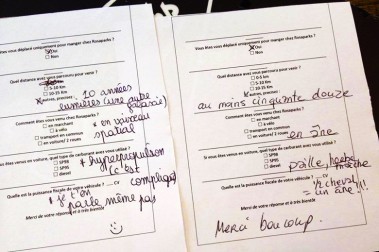 Vous êtes vous déplacé uniquement pour manger chez Rosaparks ?
Oui
Non
Quel distance avez vous parcouru pour venir ?
5-10 Km
10-15 Km
autres, préciser : 20 années
lumières (une autre
galaxie)
Comment êtes vous venu chez Rosaparks ?
en marchant
à vélo
transport en commun
en voiture/ 2 roues
en vaisseau
spatial
Si vous êtes venus en voiture, quel type de carburant avez vous utilisé ?
SP98
SP95
diesel
hyperpropulsion
(c'est
compliqué)
Quelle est la puissance fiscale de votre véhicule ? CV
je t'en
parle même pas
Merci de votre réponse et à très bientôt
Vous êtes vous déplacé uniquement pour manger chez Rosaparks ?
Oui
Non
Quel distance avez vous parcouru pour venir ?
0-5 km
5-10 Km
10-15 Km
autres, préciser :
au moins cinquante douze
Comment êtes vous venu chez Rosaparks ?
en marchant
à vélo
transport en commun
en voiture/ 2 roues en âne
Si vous êtes venus en voiture, quel type de carburant avez vous utilisé ?
SP98
SP95
diesel
paille, herbe
Quelle est la puissance fiscale de votre véhicule ? CV
1/2 cheval
= un âne !!!
Merci de votre réponse et à très bientôt
Merci boucoup.